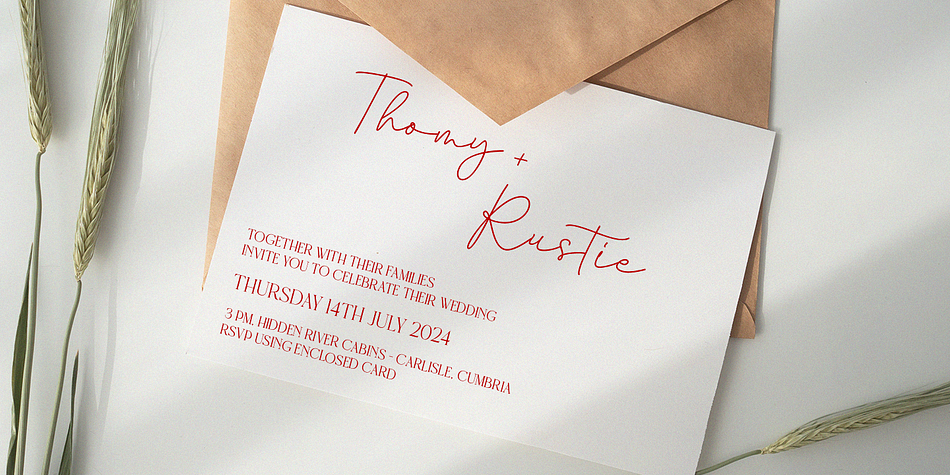 Thomy +
Rustie
TOGETHER WITH THEIR FAMILIES
INVITE YOU TO CELEBRATE THEIR WEDDING
THURSDAY 14TH JULY 2024
3 PM, HIDDEN RIVER CABINS - CARLISLE, CUMBRIA
RSVP USING ENCLOSED CARD